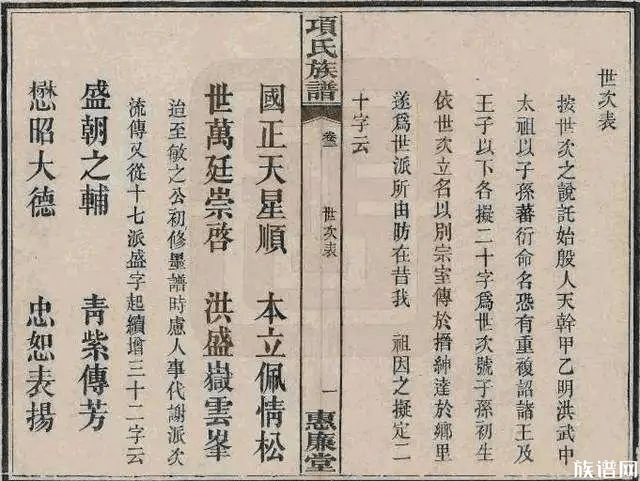 世次表
按世次之說託始殷人天幹甲乙明洪武中
太祖以子孫蕃衍命名恐有重複詔諸王及
王子以下各擬二十字爲世次號子孫初生
依世次立名以別宗室傳於搢紳達於鄉里
遂爲世派所由昉在昔我 祖因之擬定二
十字云
項氏族譜
卷三
世次表
一
惠廉堂
國正天星順 本立佩情松
世萬廷崇啓 洪盛嶽雲峯
迨至敏之公初修墨譜時慮人事代謝派次
流傳又從十七派盛字起續增三十二字云
盛朝之輔 青紫傳芳
懋昭大德 忠恕表揚
族谱网